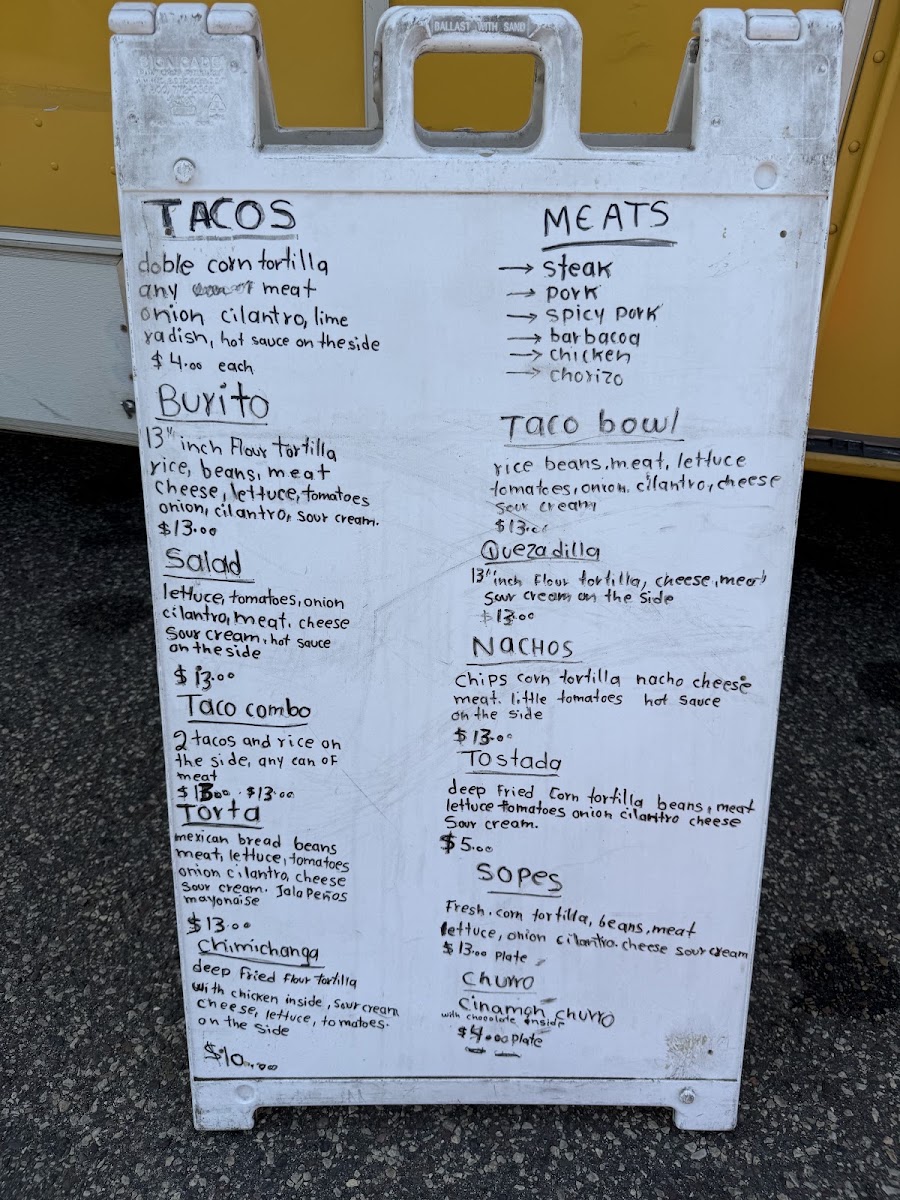 BALLAST WITH SAND
TACOS
doble corn tortilla
any meat
onion cilantro, lime
radish, hot sauce on the side
$4.00 each
Burito
13" inch Flour tortilla
rice, beans, meat
cheese, lettuce, tomatoes
onion, cilantro, sour cream.
$13.00
Salad
lettuce, tomatoes, onion
cilantro, meat, cheese
Sour cream, hot sauce
on the side
$13.00
Taco combo
2 tacos and rice on
the side, any can of
meat
$13.00 . $13.00
Torta
mexican bread beans
meat, lettuce, tomatoes
onion cilantro, cheese
Sour cream. Jalapeños
mayonaise
$13.00
Chimichanga
deep Fried Flour tortilla
with chicken inside, sour cream
cheese, lettuce, tomatoes.
on the side
$10.00
MEATS
→ steak
→ pork
→ spicy pork
→ barbacoa
→ chicken
→ chorizo
Taco bowl
rice beans, meat, lettuce
tomatoes, onion, cilantro, cheese
sour cream
$13.00
Quezadilla
13" inch Flour tortilla, cheese, meat
Sour cream on the side
$13.00
NACHOS
Chips corn tortilla nacho cheese
meat. little tomatoes hot sauce
on the side
$13.00
Tostada
deep Fried Corn tortilla beans, meat
lettuce tomatoes onion cilantro cheese
Sour cream.
$5.00
SOPES
Fresh. corn tortilla, beans, meat
lettuce, onion cilantro. cheese sour cream
$13.00 Plate
Churro
Cinamon churro
with chocolate inside
$4.00 plate